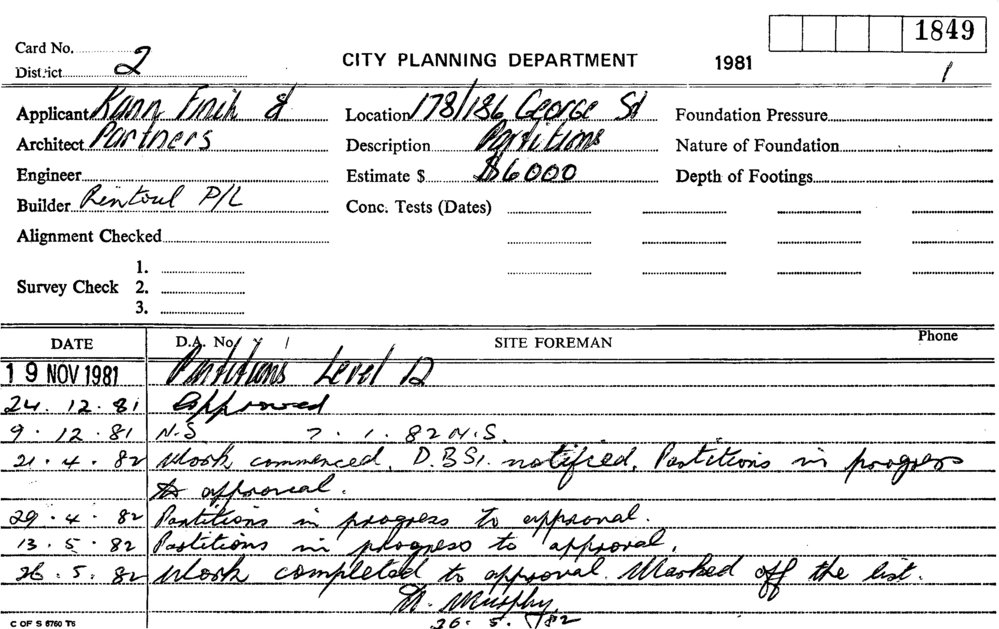 1849
Card No. 2
CITY PLANNING DEPARTMENT 1981
District
1
Applicant Kann Finch &
Location 178/186 George St
Foundation Pressure
Architect Partners
Description Partitions
Nature of Foundation
Engineer
Estimate $ $6000
Depth of Footings
Builder Rintoul P/L
Conc. Tests (Dates)
Alignment Checked
1.
Survey Check 2.
3.
DATE D.A. No. SITE FOREMAN Phone
19 NOV 1981 Partitions Level 12
24. 12. 81 Approved
9. 12. 81 N.S. 7. 1. 82 N.S.
21. 4. 82 Work commenced. D.B.S. notified. Partitions in progress
to approval.
29. 4. 82 Partitions in progress to approval.
13. 5. 82 Partitions in progress to approval.
26. 5. 82 Work completed to approval. Marked off the list.
M. Murphy
26. 5. 82
C OF S 5760 T5